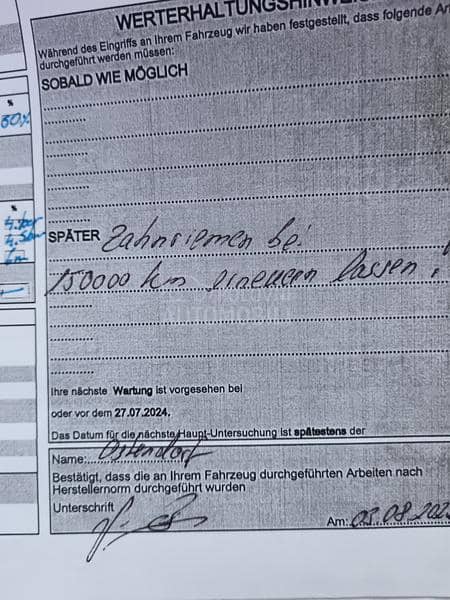 WERTERHALTUNGSHINWEIS
Während des Eingriffs an Ihrem Fahrzeug wir haben festgestellt, dass folgende Ar
durchgeführt werden müssen:
SOBALD WIE MÖGLICH
%
60%
%
SPÄTER Zahnriemen bei
150000 km erneuern lassen.
AUTOMOBILE
Ihre nächste Wartung ist vorgesehen bei
oder vor dem 27.07.2024.
Das Datum für die nächste Haupt-Untersuchung ist spätestens der
Name: Ostendorf
Bestätigt, dass die an Ihrem Fahrzeug durchgeführten Arbeiten nach
Herstellernorm durchgeführt wurden
Unterschrift
Am: 03.08.202